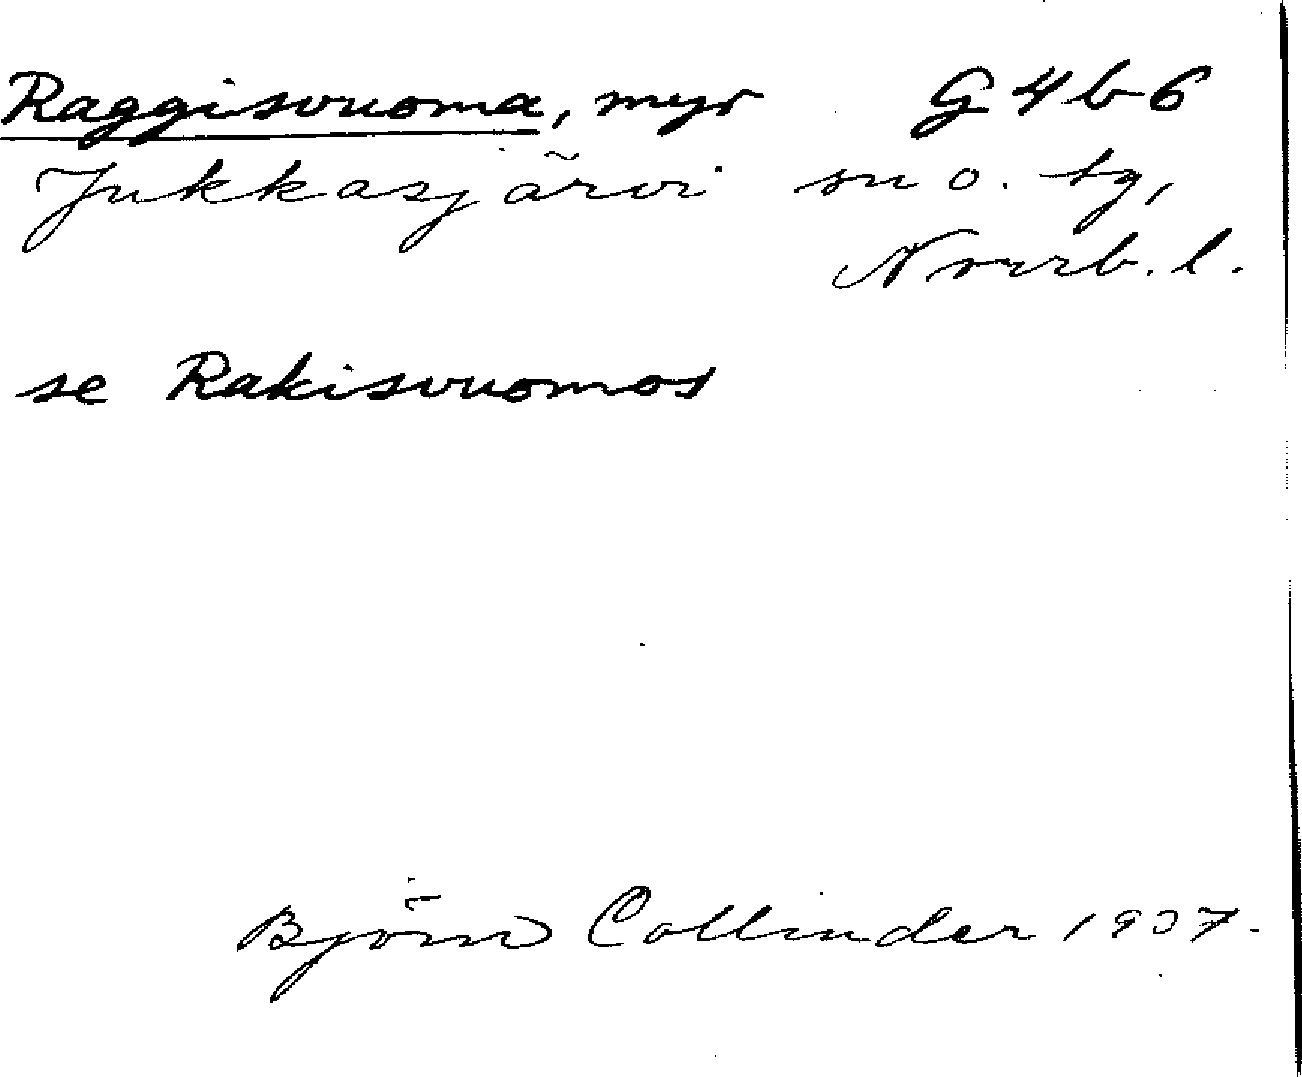 Raggisvuoma, myr G4b6
Jukkasjärvi sn o. tg,
Norrb. l.
se Rakisvuomos
Björn Collinder 1937.